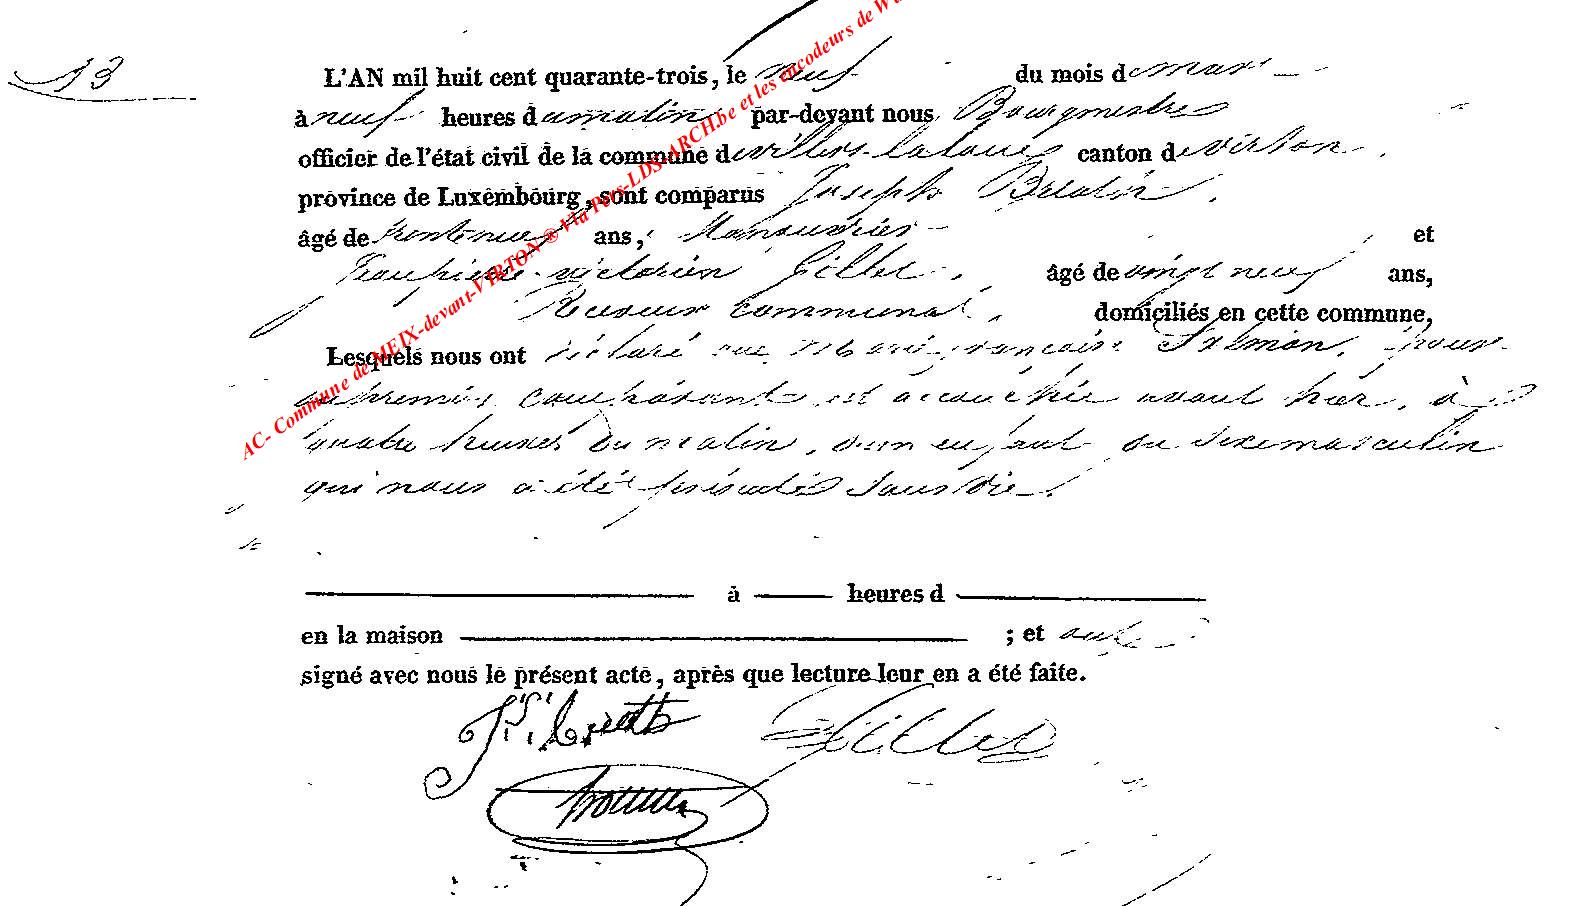 13
L'AN mil huit cent quarante-trois, le neuf du mois de mars
à neuf heures du matin par-devant nous Bourgmestre
officier de l'état civil de la commune de villers-laloue canton de virton.
province de Luxembourg, sont comparus Joseph
âgé de trente neuf ans, Manouvrier et
Jean pierre victorien Gillet, âgé de vingt neuf ans,
Receveur communal, domiciliés en cette commune,
Lesquels nous ont déclaré que Marie françoise Salmon, épouse
du premier comparant est accouchée avant hier, à
quatre heures du matin, d'un enfant du sexe masculin
qui nous a été présenté sans vie.
à heures d
en la maison ; et ont
signé avec nous le présent acte, après que lecture leur en a été faite.
Gillet
AC- Commune de MEIX-devant-VIRTON ® Via Pars-LDS-ARCH.be et les encodeurs de